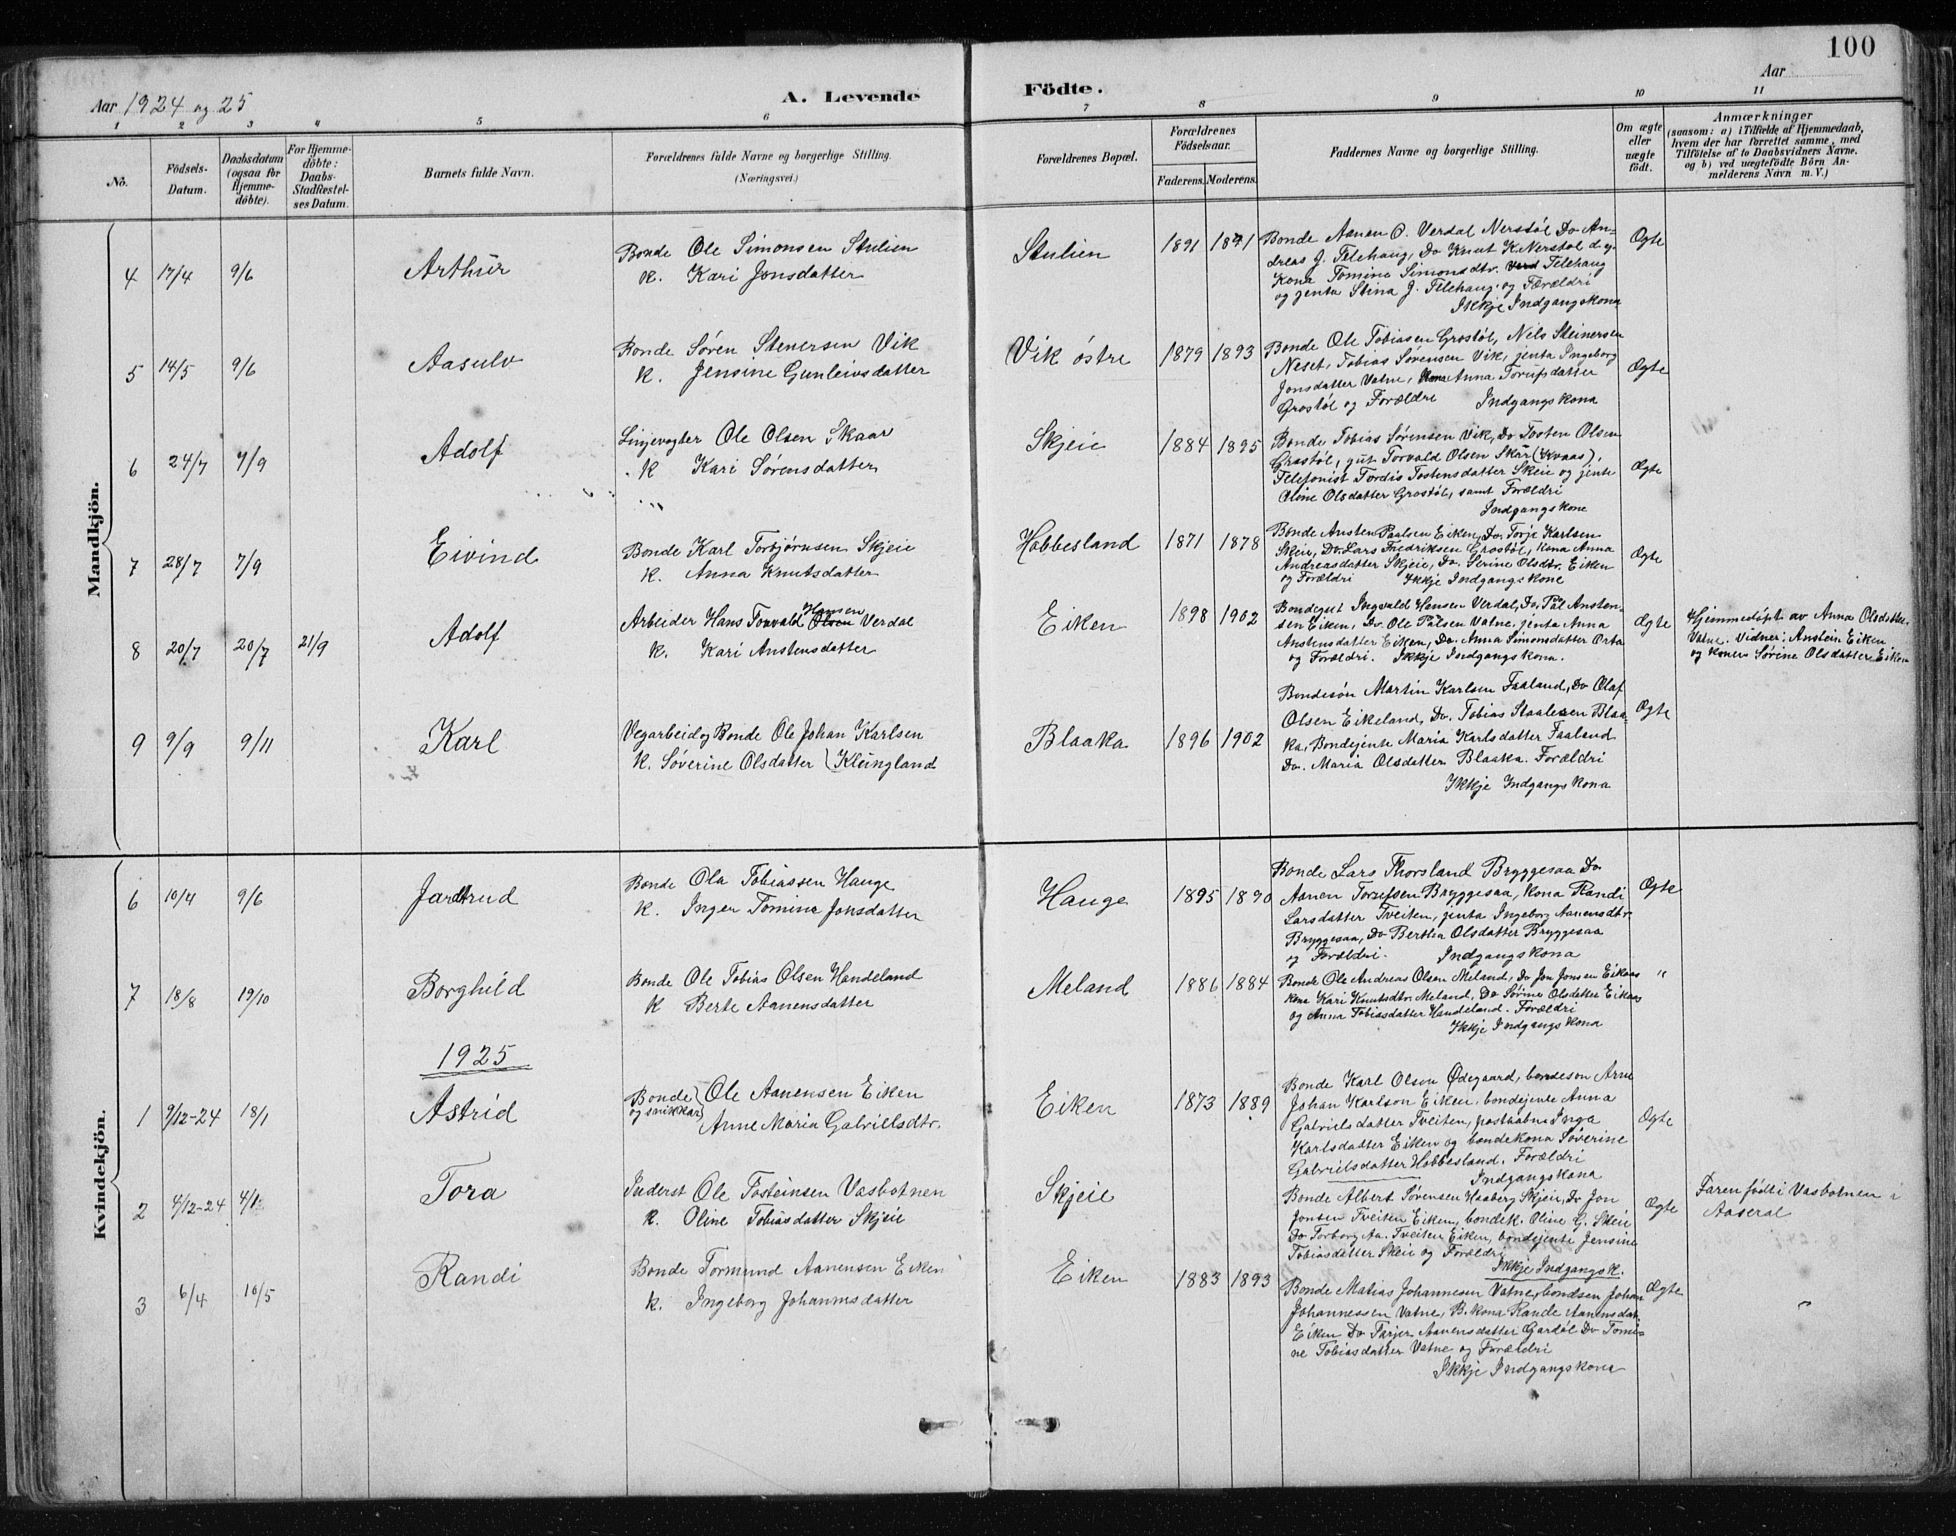 100
Aar 1924 og 25
A. Levende Födte.
Aar
1 2 3 4 5 6 7 8 9 10 11
No.
Födsels-Datum.
Daabsdatum (ogsaa for Hjemme-døbte).
For Hjemme-döbte: Daabs-Stadfæstel-ses Datum.
Barnets fulde Navn.
Forældrenes fulde Navne og borgerlige Stilling.
(Næringsvei.)
Forældrenes Bopæl.
Forældrenes Födselsaar.
Faderens. Moderens.
Faddernes Navne og borgerlige Stilling.
Om ægte eller uægte födt.
Anmærkninger
(saasom: a) i Tilfælde af Hjemmedaab, hvem der har forrettet samme, med Tilföielse af to Daabsvidners Navne. og b) ved uægtefödte Börn Anmelderens Navn m. V.)
Mandkjön.
4 17/4 9/6 Arthur
Bonde Ole Simonsen Stulien
k. Kari Jonsdatter
Stulien 1891 1891
Bonde Aanen O. Verdal Nerstøl Do An-
dreas J. Telehaug, Do Knut K. Nerstøl d.y.
Kona Tomine Simonsdtr. Telehaug
og jenta Stina J. Telehaug og Forældri
Ikkje Indgangskona
Ægte
5 14/5 9/6 Aasulv
Bonde Søren Stenersen Vik
k. Jensine Gunleivsdatter
Vik östre 1879 1893
Bonde Ole Tobiasen Grostøl, Nels Steinersen
Neset, Tobias Sørensen Vik, jenta Ingeborg
Jonsdatter Vatne, Anna Torufsdatter
Grostøl og Forældre Indgangskona
Ægte
6 24/7 7/9 Adolf
Linjevogter Ole Olsen Skaar
k Kari Sørensdatter
Skjeie 1884 1895
Bonde Tobias Sørensen Vik, Do Tosten Olsen
Grostøl, gut Torvald Olsen Skår (Kvaas),
Telefonist Tordis Tostensdatter Skeie og jente
Oline Olsdatter Grostøl, samt Forældri
Indgangskone
Ægte
7 28/7 7/9 Eivind
Bonde Karl Torbjørnsen Skjeie
k. Anna Knutsdatter
Hobbesland 1871 1878
Bonde Ansten Paalsen Eiken, Do. Torje Karlsen
Skeie, Do. Lars Fredriksen Grostøl, kona Anna
Andreasdatter Skjeie, Do. Serine Olsdtr. Eiken
og Forældri Ikkje Indgangskone
Ægte
8 20/7 20/7 21/9 Adolf
Hansen
Arbeider Hans Torvald Olsen Verdal
k. Kari Anstensdatter
Eiken 1898 1902
Bondegut Ingvald Hansen Verdal, Do. Pål Ansten-
sen Eiken, Do. Ole Pålsen Vatne, jenta Anna
Anstensdatter Eiken, Do. Anna Simonsdatter Orta
og Forældri. Ikkje Indgangskona.
Ægte
Hjemmedøpt av Anna Olsdatter
Vatne. Vidner: Anstein Eiken
og koner Sørine Olsdatter Eiken
9 9/9 9/11 Karl
Vegarbeid og Bonde Ole Johan Karlsen
k. Søverine Olsdatter } Kleingland
Blaaka 1896 1902
Bondesøn Martin Karlsen Faaland, Do Olaf
Olsen Eikeland, Do. Tobias Staalesen Blaa-
ka, Bondejente Maria Karlsdatter Faaland
Do. Maria Olsdatter Blaaka. Forældri
Ikkje Indgangskona
Ægte
Kvindekjön.
6 10/4 9/6 Jartrud
Bonde Ola Tobiassen Hauge
k. Inger Tomine Jonsdatter
Hauge 1895 1890
Bonde Lars Thorsland Bryggesaa Do
Aanen Torufsen Bryggesaa, kona Randi
Larsdatter Tveiten, jenta Ingeborg Aanensdtr.
Bryggesaa, Do Bertha Olsdatter Bryggesaa
og Forældri. Indgangskona
Ægte
7 18/8 19/10 Borghild
Bonde Ole Tobias Olsen Handeland
k Berte Aanensdatter
Meland 1886 1884
Bonde Ole Andreas Olsen Meland, Do Jon Jonsen Eikaas
kona Kari Knutsdtr. Meland, Do Sørine Olsdatter Eikaas
og Anna Tobiasdatter Handeland. Forældri
Ikkje Indgangskona
"
1925
1 9/12-24 18/1 Astrid
Bonde og snikkar } Ole Aanensen Eiken
Anne Maria Gabrielsdtr.
Eiken 1873 1889
Bonde Karl Olson Ødegaard, bondeson Arne
Johan Karlson Eiken, bondejente Anna
Gabrielsdatter Tveiten, postaabne Inga
Karlsdatter Eiken og bondekona Søverine
Gabrielsdatter Hobbesland. Forældri
Indgangskona
Ægte
2 4/12-24 4/1 Tora
Inderst Ole Tosteinsen Vasbotnen
k. Oline Tobiasdatter Skjeie
Skjeie
Bonde Albert Sørensen Haaberg Skjeie, Do Jon
Jonsen Tveiten Eiken, bondek. Oline G. Skeie
Do Torborg Aa. Tveiten Eiken, bondejenti Jensine
Tobiasdatter Skeie og Forældri
Ikkje Indgangsk.
Ægte
Faren født i Vasbotnen i
Aaseral
3 6/4 10/5 Randi
Bonde Tormund Aanensen Eiken
k. Ingeborg Johannesdatter
Eiken 1883 1893
Bonde Matias Johannesen Vatne, bondsen Johan
Johannessen Vatne, B. kona Rande Aanensdat.
Eiken Do Tarjer Aanensdatter Gardøl Do Tomi-
ne Tobiasdatter Vatne og Forældri
Ikkje Indgangskona
Ægte